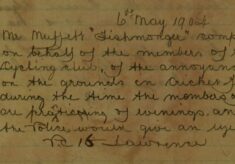 6th May 1904
Mr Muffett "Fishmonger" comp
on behalf of the members of
Cycling club, of the annoyan
on the grounds in Cricket f
during the time the members
are practicing of evenings, an
the Police would give an ey
P.C. 16 Lawrence